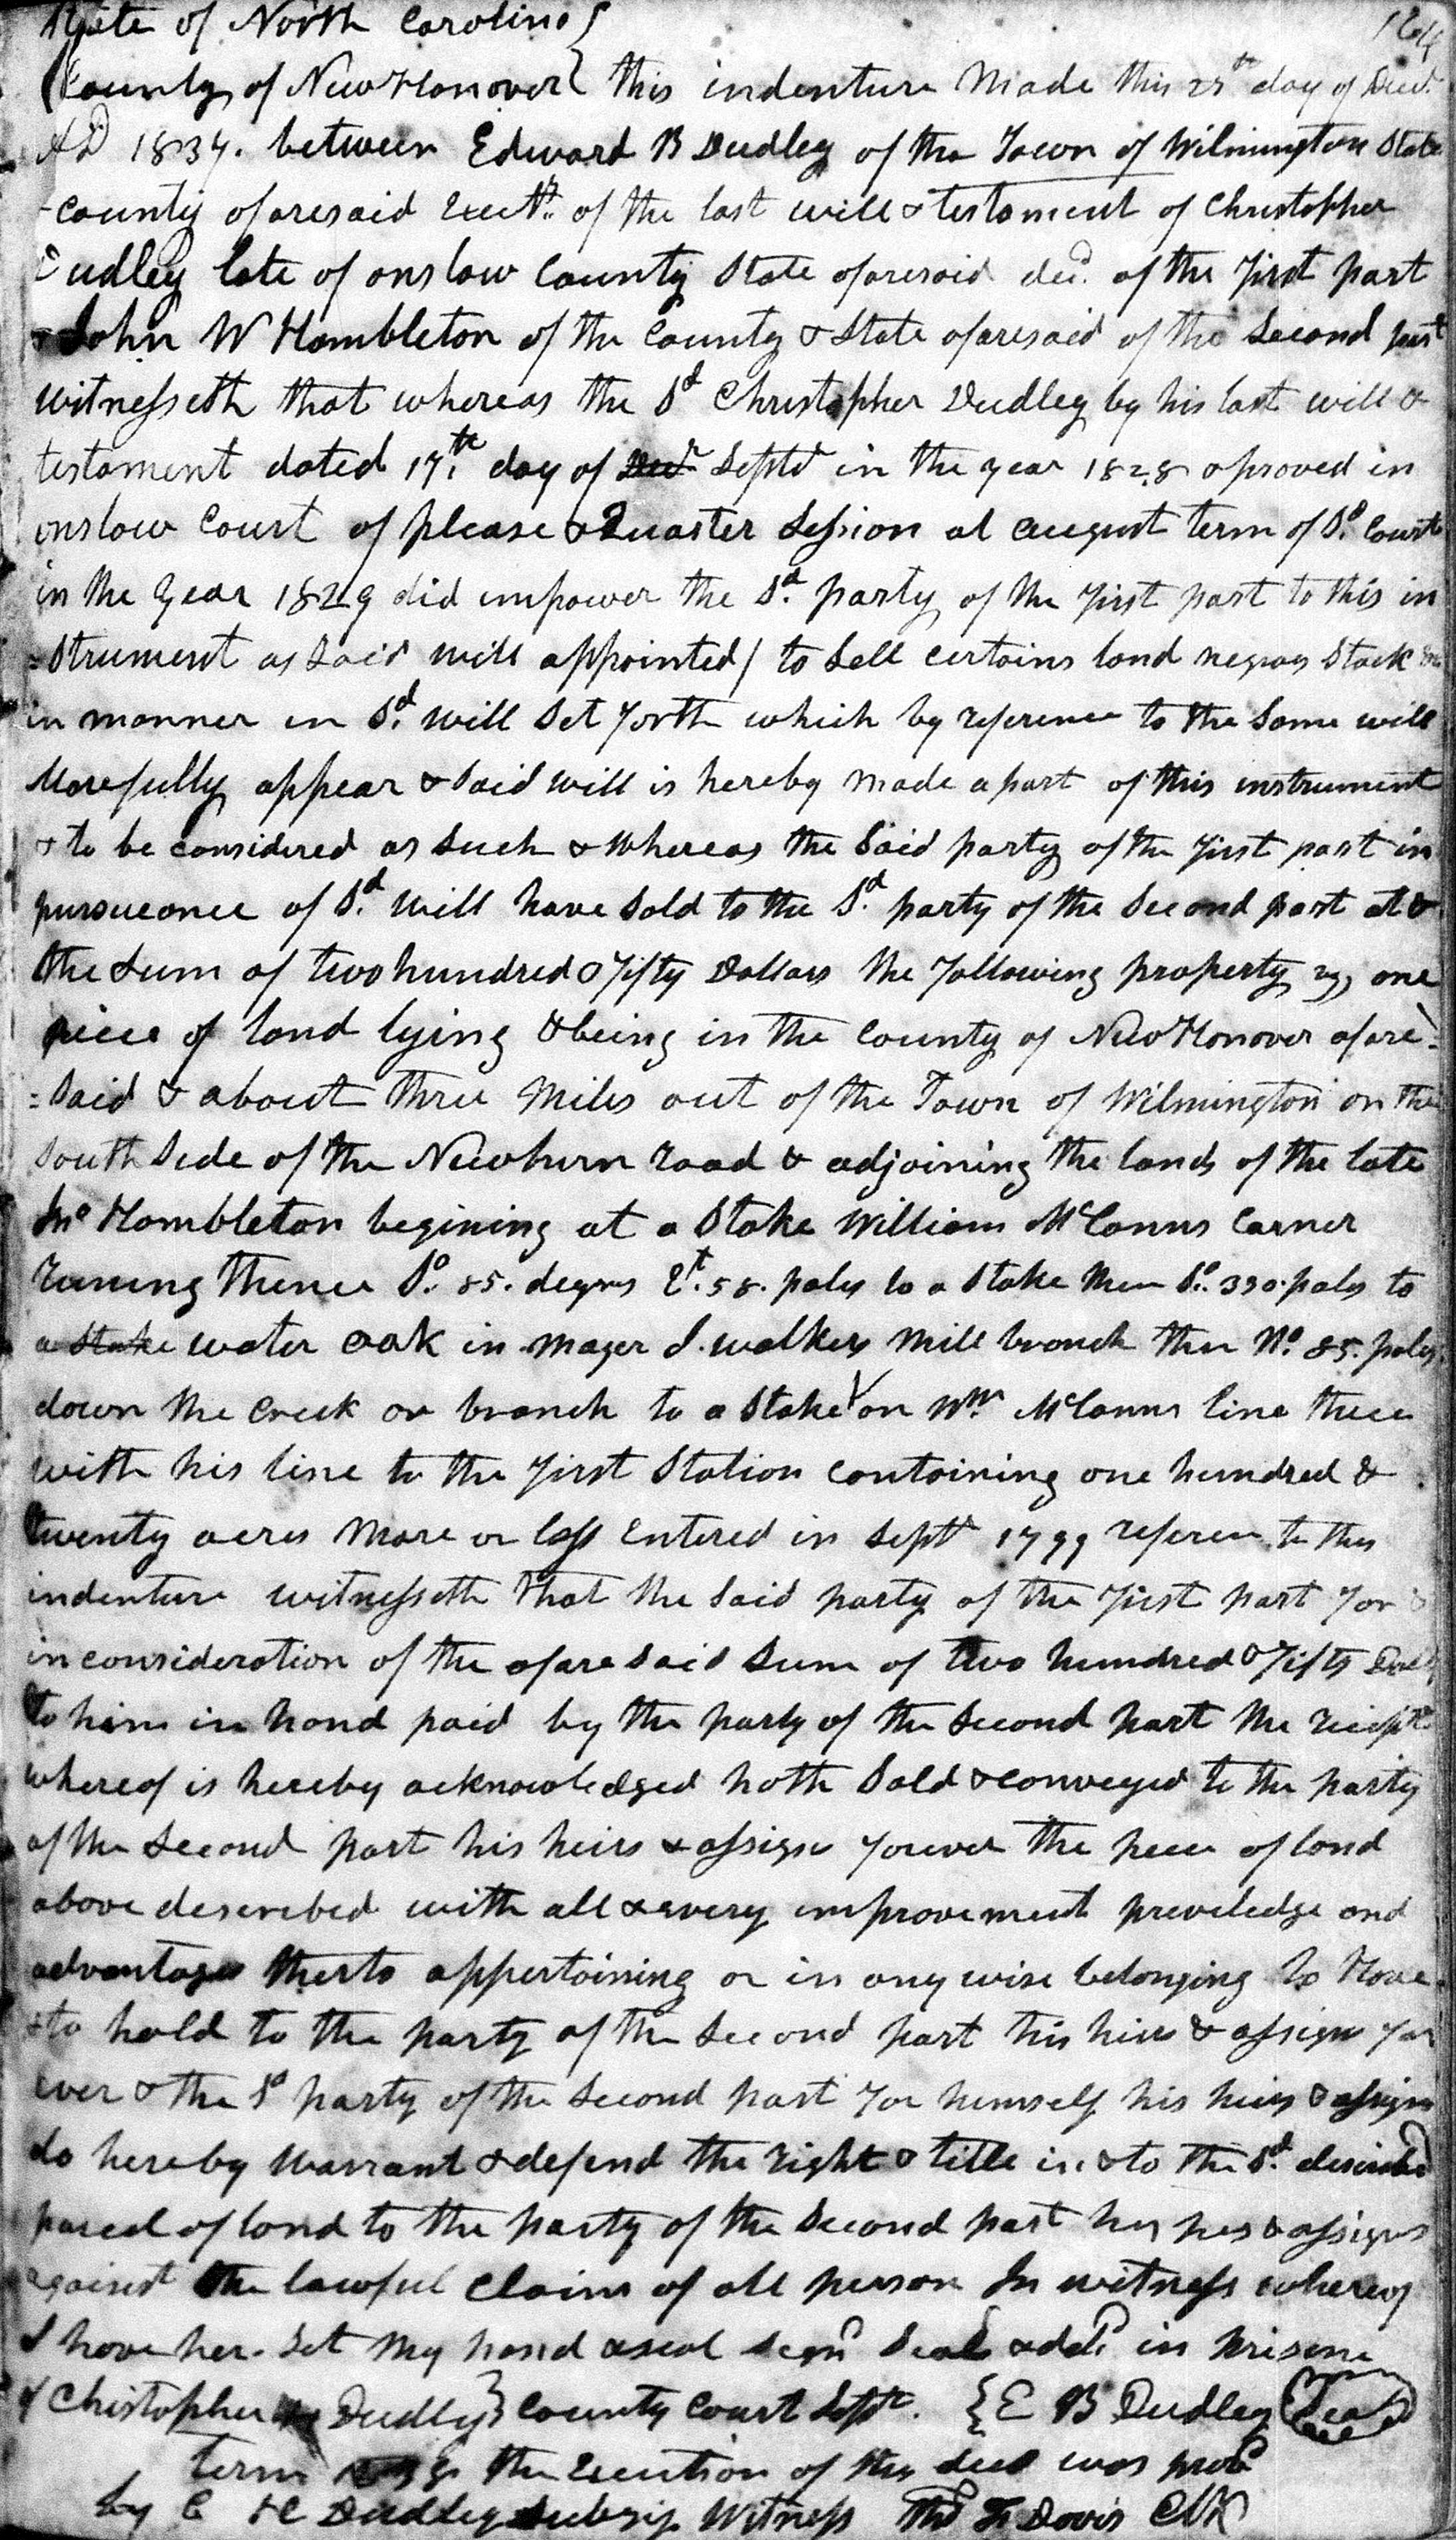 State of North Carolina
County of New Hanover } this indenture Made this day of Decr
AD 1834. between Edward B Dudley of the Town of Wilmington State
County aforesaid Exectr. of the last will & testament of Christopher
Dudley late of onslow County State aforesaid decd. of the first part
& John W Hambleton of the County & State aforesaid of the Second part
witnesseth that whereas the Sd Christopher Dudley by his last will &
testament dated 17th day of Decr Septr in the year 1828 aproved in
onslow Court of please & Quarter Session at august term of Sd. Court
in the year 1829 did impower the Sd. party of the first part to this in
=strument as Said will appointed / to Sell certains land negros Stock
in manner in Sd. will Set forth which by reference to the Same will
More fully appear & Said will is hereby made a part of this instrument
& to be considered as Such & whereas the Said party of the first part in
pursueance of Sd. will have Sold to the Sd. party of the Second part at &
the Sum of two hundred & fifty Dollars the following property one
piece of land lying & being in the County of New Hanover afore=
=Said & about three Miles out of the Town of Wilmington on the
South Side of the Newburn road & adjoining the lands of the late
Jno Hambleton begining at a Stake William McCanns Corner
runing thence So. 85. degres Et. 58. poles to a Stake then So. 330 poles to
a Stake water oak in mager J. walkers Mill branch then No. 85. poles
down the Creek or branch to a Stake on Wm McCanns line thece
with his line to the first Station containing one hundred &
twenty acres More or less Entered in Septr 1799 referen to this
indenture witnesseth that the Said party of the first part for &
in consideration of the afore Said Sum of two hundred & fifty Doll
to him in hand paid by the party of the Second part the recipt
whereof is hereby acknowledged hath Sold & conveyed to the party
of the Second part his heirs & assigns forever the peece of land
above described with all & every improvement preveledge and
advantages therto appertaining or in any wise belonging to Have
& to hold to the party of the Second part his heirs & assigns for
ever & the Sd party of the Second part for himself his heirs & assigns
do hereby Warrant & defend the right & title in & to the Sd. described
parcel of land to the party of the Second part his heirs & assigns
against the lawful Claims of all person In witness whereof
I have her. Set my hand & seal Signd Seald & deld in prisence
of Christopher Dudley } County Court Septr. { E B Dudley Seal
term the Execution of this deed was provd
by C H Dudley Subscrip Witness Thos F Davis Clk